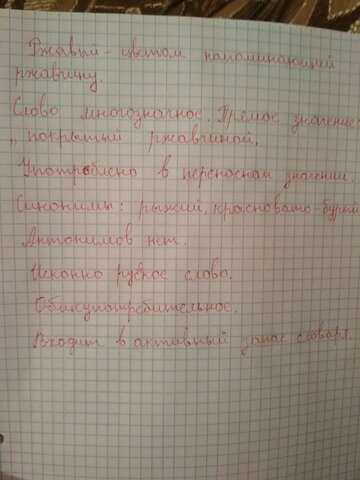 Ржавый - цветом напоминающий
ржавчину.
Слово многозначное. Прямое значение -
„ покрытый ржавчиной.
Употреблено в переносном значении.
Синонимы: рыжий, красновато-бурый
Антонимов нет.
Исконно русское слово.
Общеупотребительное.
Входит в активный запас словаря.